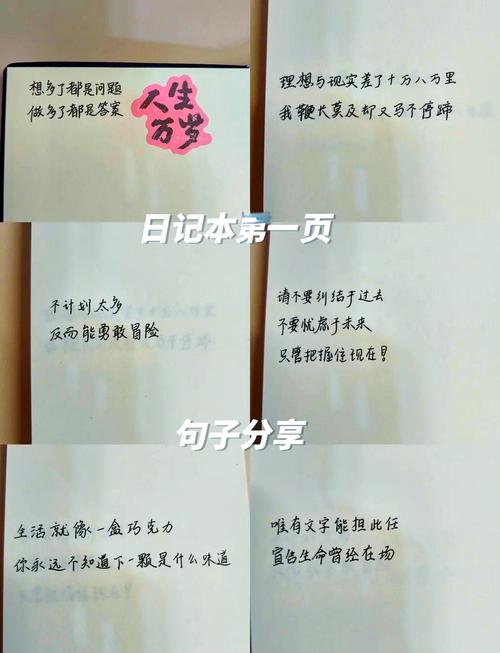 想多了都是问题
做多了都是答案
人生
万岁
理想与现实差了十万八万里
我鞭长莫及却又马不停蹄
日记本第一页
不计划太多
反而能勇敢冒险
请不要纠结于过去
不要忧虑于未来
只管把握住现在!
句子分享
生活就像一盒巧克力
你永远不知道下一颗是什么味道
唯有文字能担此任
宣告生命曾经在场